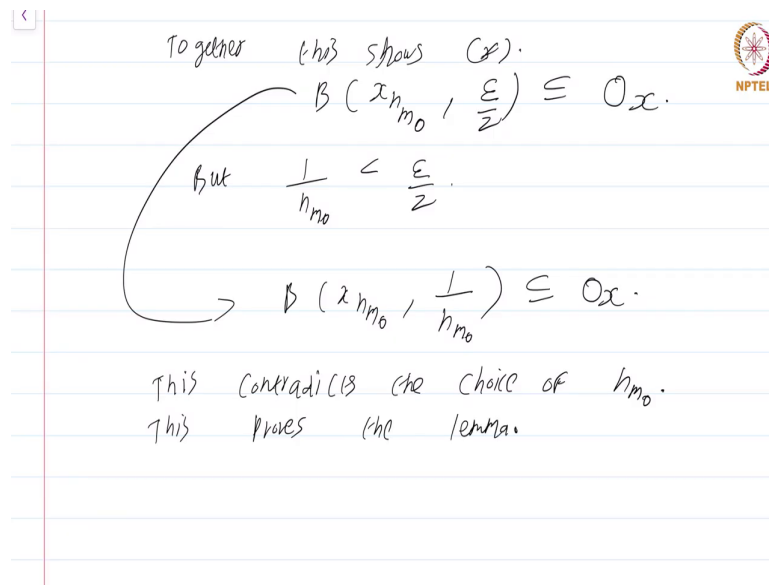 Together this shows (*).
B(x_{n_{m_0}}, ε/2) ⊆ O_x.
NPTEL
But 1/n_{m_0} < ε/2.
B(x_{n_{m_0}}, 1/n_{m_0}) ⊆ O_x.
This contradicts the choice of n_{m_0}.
This proves the lemma.